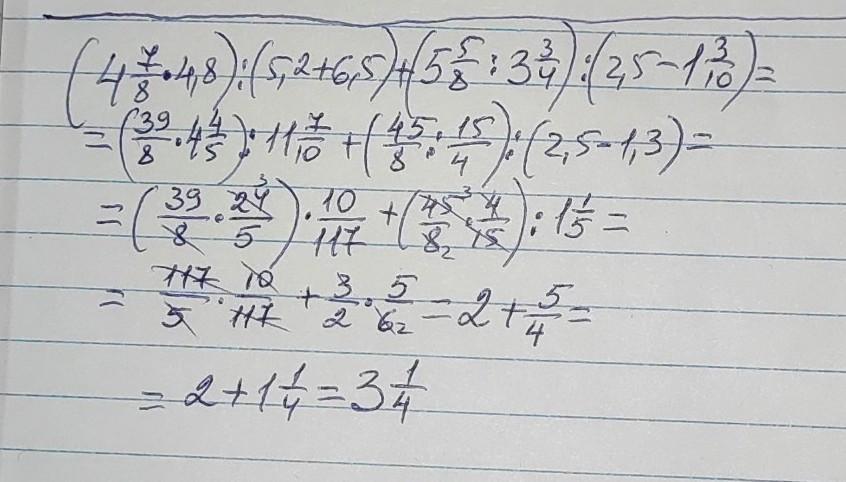 (4 7/8 · 4,8) : (5,2 + 6,5) + (5 5/8 : 3 3/4) : (2,5 − 1 3/10) =
= (39/8 · 4 4/5) : 11 7/10 + (45/8 : 15/4) : (2,5 − 1,3) =
= (39/8 · 24/5 3) · 10/117 + (45/8 3 2 · 4/15) : 1 1/5 =
= 117/5 · 10/117 + 3/2 · 5/6 2 = 2 + 5/4 =
= 2 + 1 1/4 = 3 1/4